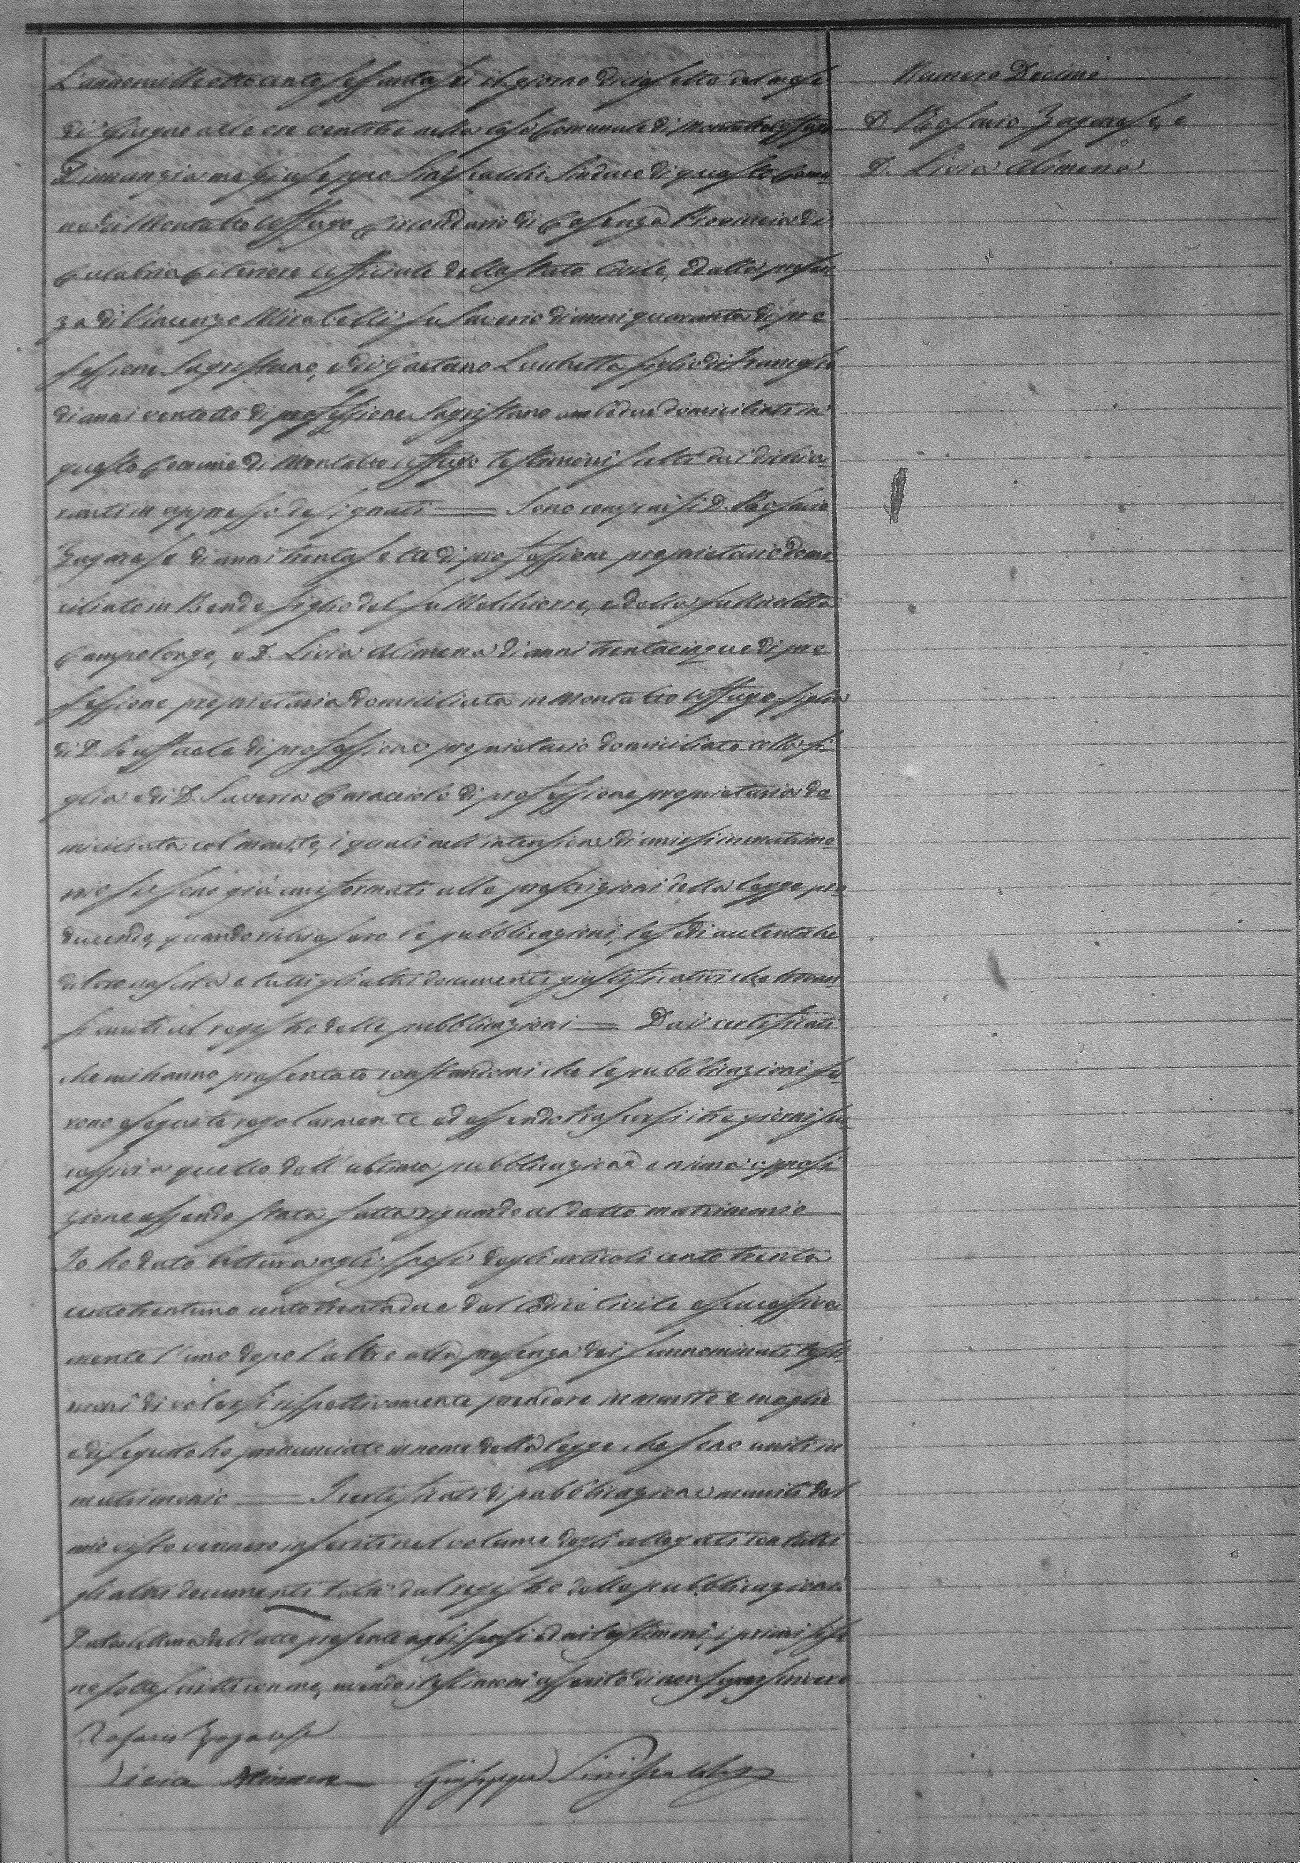 L'anno mille otto cento sessantasei il giorno diciasette del mese
di Giugno alle ore ventitre nella casa Comunale di Montalto Uffugo
Dinnanzi a me Giuseppe Sinisalchi Sindaco di questo Comu-
ne di Montalto Uffugo Circondario di Cosenza Provincia di
Calabria Citeriore uffiziale dello stato Civile, ed alla presen-
za di Vincenzo Mirabelli fu Saverio di anni quaranta di pro
fessione Sagrestano, e di Gaetano figlio di Francesco
di anni ventotto di professione Sagristano ambedue domiciliati in
questo Comune di Montalto Uffugo testimoni scelti dai dichia-
ranti in appresso designati — Sono comparsi D. Rosario
Zagarese di anni trentasette di professione proprietario domi-
ciliato in Rende figlio del fu Melchiorre, e della fu Nicoletta
Campolongo, e D. Livia Alimena di anni trentacinque di pro
fessione proprietaria domiciliata in Montalto Uffugo figlia
di D. Raffaele di professione proprietario domiciliato colla fi-
glia e di D. Saveria Caracciolo di professione proprietaria do
miciliata col marito, i quali nell'intenzione di unirsi in matrimo-
nio si sono già uniformati alle prescrizioni della legge pro
ducendo, quando richiesero le pubblicazioni, le fedi autentiche
di loro nascita e tutti gli altri documenti giustificativi che trovan
si uniti al registro delle pubblicazioni — Dai certificati
che mi hanno presentato constandomi che le pubblicazioni fu-
rono eseguite regolarmente ed essendo trascorsi i tre giorni suc
cessivi a quello dell'ultima pubblicazione e niuna opposi
zione essendo stata fatta riguardo al detto matrimonio
Io ho dato lettura agli sposi degli articoli cento trenta
centotrentuno centotrentadue del Codice Civile e successiva
mente l'uno dopo l'altro alla presenza dei sunnominati testi
moni di volersi rispettivamente prendere in marito e moglie
e di seguito ho pronunciato in nome della legge che sono uniti in
matrimonio — I certificati di pubblicazione muniti dal
mio visto vennero inseriti nel volume degli allegati con tutti
gli altri documenti tolti dal registro delle pubblicazioni
Data lettura dell'atto presente agli sposi ed ai testimoni, i primi si so
no sottoscritti con me, avendo i testimoni asserito di non saper scrivere
Rosario Zagarese
Livia Alimena Giuseppe Sinisalchi
Numero Decimo
D. Rosario Zagarese, e
D. Livia Alimena